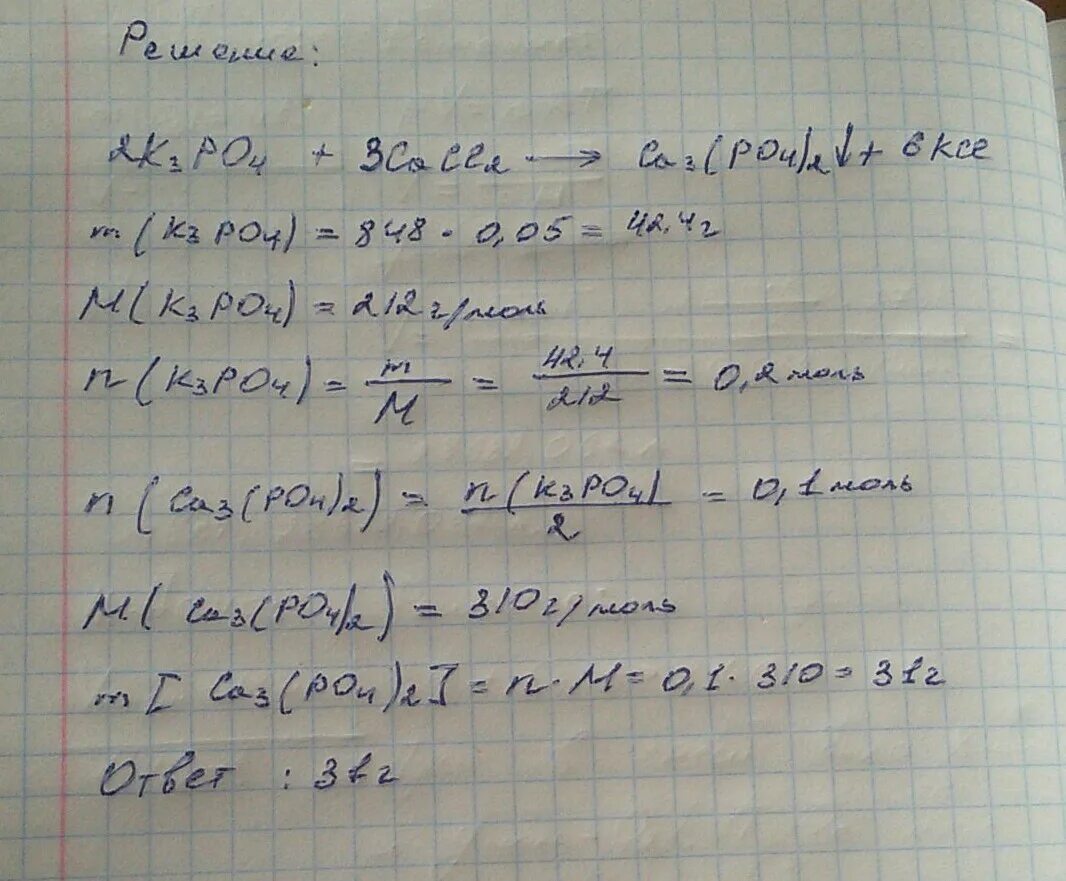 Решение:
2K₃PO₄ + 3CaCl₂ → Ca₃(PO₄)₂↓ + 6KCl
m(K₃PO₄) = 848 · 0,05 = 42,4г
M(K₃PO₄) = 212 г/моль
n(K₃PO₄) = m/M = 42,4/212 = 0,2 моль
n(Ca₃(PO₄)₂) = n(K₃PO₄)/2 = 0,1 моль
M(Ca₃(PO₄)₂) = 310 г/моль
m[Ca₃(PO₄)₂] = n · M = 0,1 · 310 = 31г
Ответ : 31г